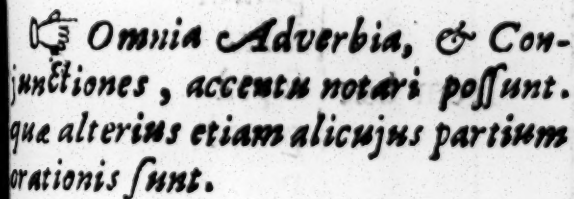 ☞ Omnia Adverbia, & Con-
junctiones, accentu notari poſſunt.
quæ alterius etiam alicujus partium
orationis ſunt.